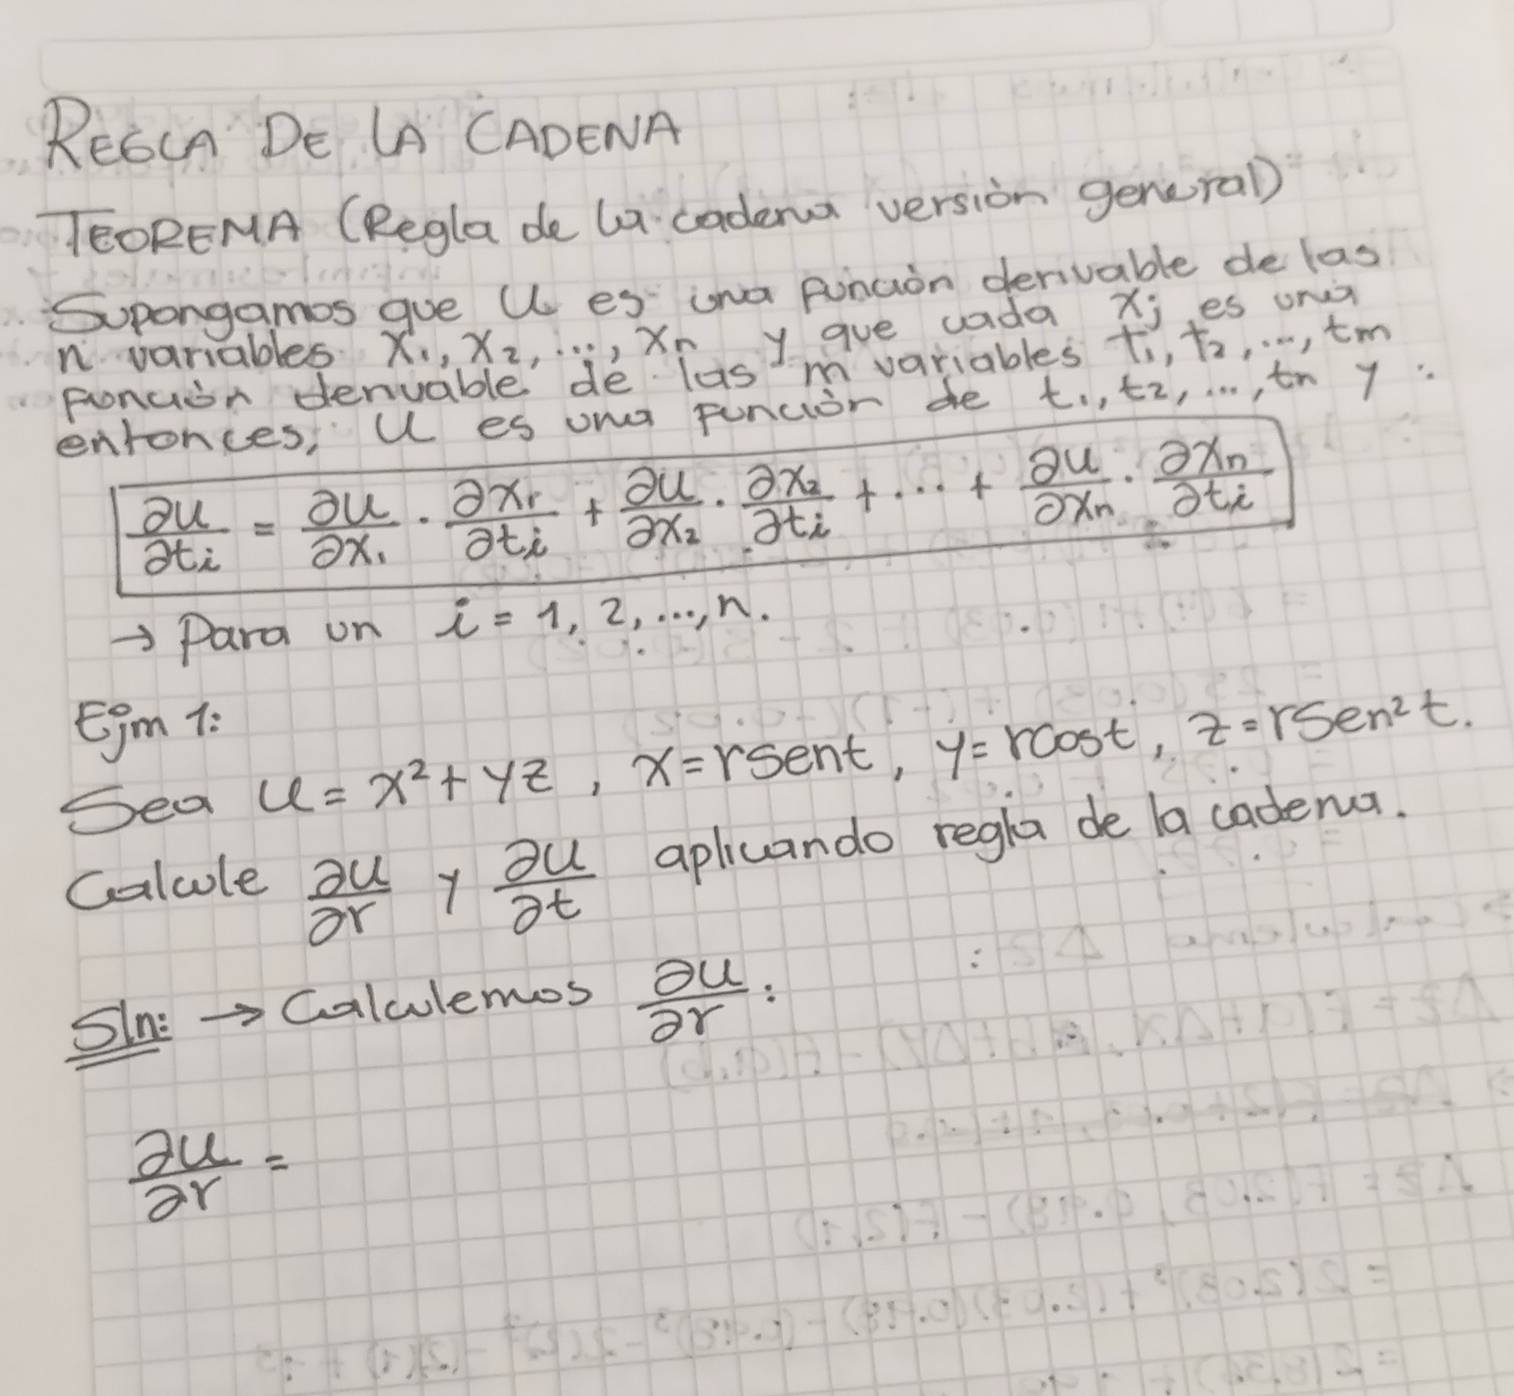 REGLA DE LA CADENA
TEOREMA (Regla de la cadena versión general)
Supongamos que u es una función derivable de las
n variables x₁, x₂, ..., xₙ y que cada xⱼ es una
función derivable de las m variables t₁, t₂, ..., tm
entonces, u es una función de t₁, t₂, ..., tn y :
∂u/∂ti = ∂u/∂x₁ · ∂x₁/∂ti + ∂u/∂x₂ · ∂x₂/∂ti + ... + ∂u/∂xn · ∂xn/∂ti
→ Para un i = 1, 2, ..., n.
Ejm 1:
Sea u = x² + yz , x = rsent, y = rcost, z = rsen²t.
Calcule ∂u/∂r y ∂u/∂t aplicando regla de la cadena.
Sln: → Calculemos ∂u/∂r :
∂u/∂r =